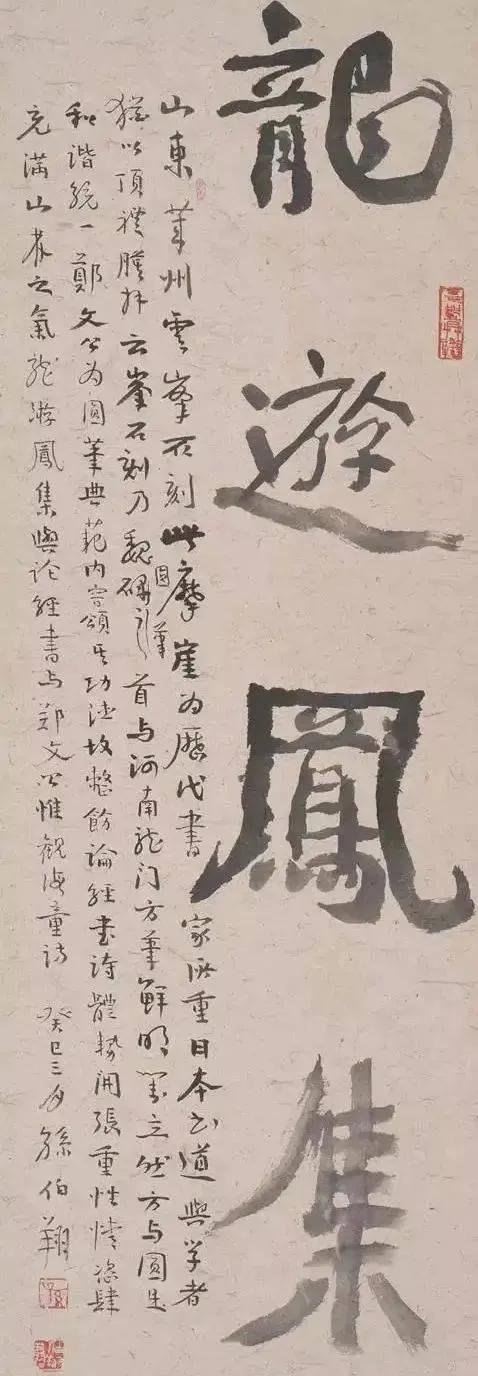 龍遊鳳集
山東萊州雲峯石刻此摩崖为歷代書家所重日本书道與学者
猶以頂禮膜拜云峯石刻乃魏碑圓筆之首与河南龙门方筆鮮明对立然方与圓生
和谐統一鄭文公为圓筆典范内容頌其功德故整飭論經書詩體勢開張重性情恣肆
充满山林之氣龙游鳳集與论經書与郑文公惟觀海童詩 癸巳三月孫伯翔